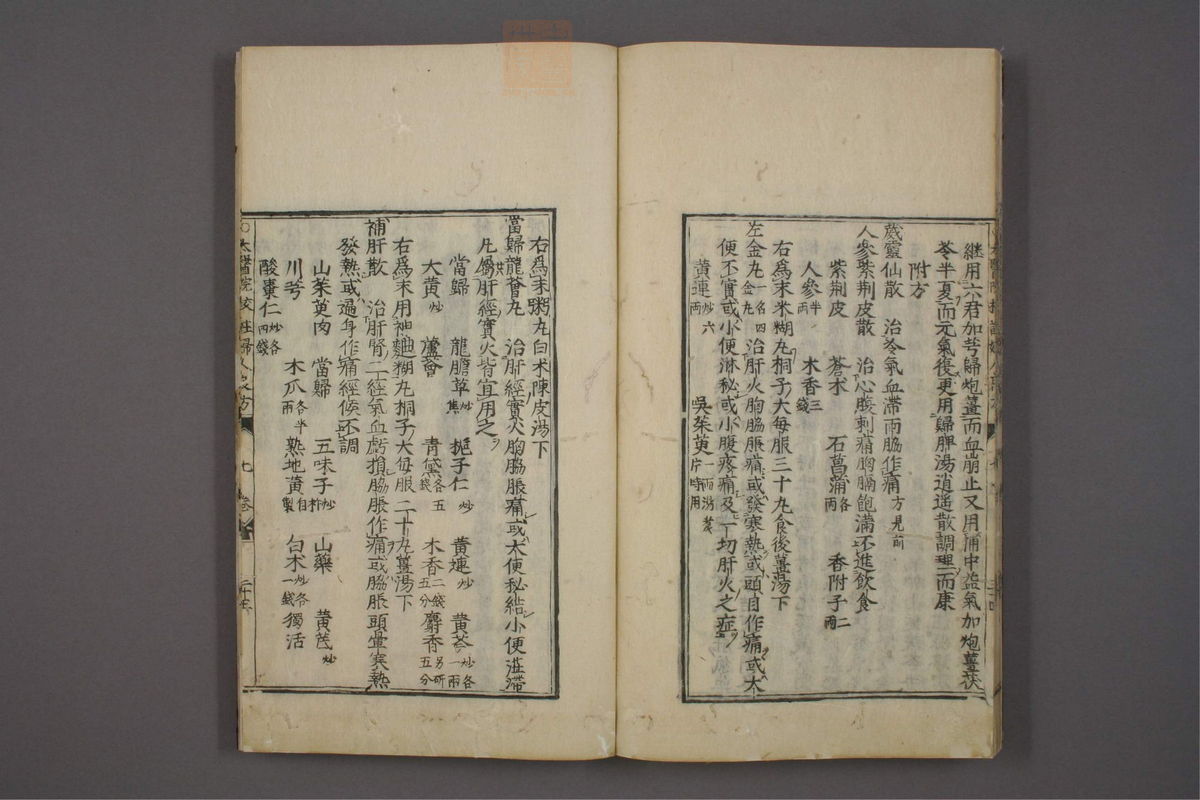 繼用六君加芎歸炮薑而血崩止又用補中益氣加炮薑茯
苓半夏而元氣復更用歸脾湯逍遙散調理而康
附方
葳靈仙散　治冷氣血滯兩脇作痛方見前
人參紫荆皮散　治心腹刺痛胸膈飽滿不進飲食
紫荆皮　蒼朮　石菖蒲各一兩　香附子二兩
人參半兩　木香三錢
右爲末米糊丸桐子大每服三十丸食後薑湯下
左金丸一名四金丸　治肝火胸脇脹痛或發寒熱或頭目作痛或大
便不實或小便淋秘或小腹疼痛及一切肝火之症
黄連炒六兩　吳茱萸一兩湯煑片時用
右爲末粥丸白朮陳皮湯下
當歸龍薈丸　治肝經實火胸脇脹痛或大便秘結小便澁滯
凡屬肝經實火皆宜用之
當歸　龍膽草炒焦　梔子仁炒　黄連炒　黄芩炒各一兩
大黄炒　蘆薈　青黛各五錢　木香二錢五分　麝香另研五分
右爲末用神麯糊丸桐子大每服二十丸薑湯下
補肝散　治肝腎二經氣血虧損脇脹作痛或脇脹頭暈寒熱
發熱或遍身作痛經候不調
山茱萸肉　當歸　五味子炒杵　山藥　黄芪炒
川芎　木瓜各半兩　熟地黄自製　白朮炒各一錢　獨活
酸棗仁炒各四錢
太醫院校註婦人良方　七卷